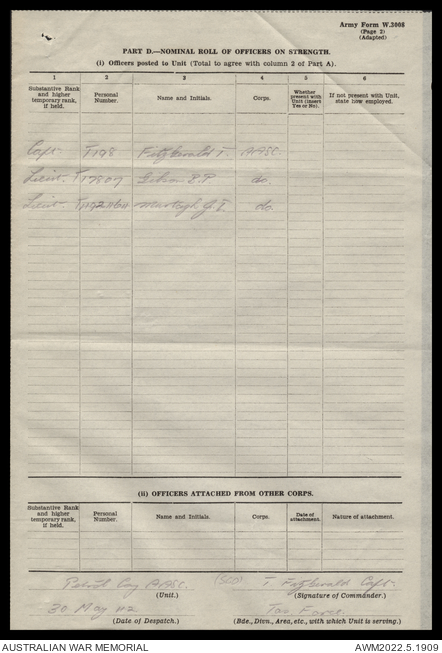 Army Form W.3008
(Page 2)
(Adapted)
PART D.—NOMINAL ROLL OF OFFICERS ON STRENGTH.
(i) Officers posted to Unit (Total to agree with column 2 of Part A).
1 2 3 4 5 6
Substantive Rank and higher temporary rank, if held. Personal Number. Name and Initials. Corps. Whether present with Unit (insert Yes or No). If not present with Unit, state how employed.
Capt. T198 Fitzgerald T. AASC.
Lieut. P. do.
Lieut. do.
(ii) OFFICERS ATTACHED FROM OTHER CORPS.
Substantive Rank and higher temporary rank, if held. Personal Number. Name and Initials. Corps. Date of attachment. Nature of attachment.
Petrol Coy AASC. (SGD) T. Fitzgerald Capt.
(Unit.) (Signature of Commander.)
30 May 42 Tas Force.
(Date of Despatch.) (Bde., Divn., Area, etc., with which Unit is serving.)
AUSTRALIAN WAR MEMORIAL AWM2022.5.1909